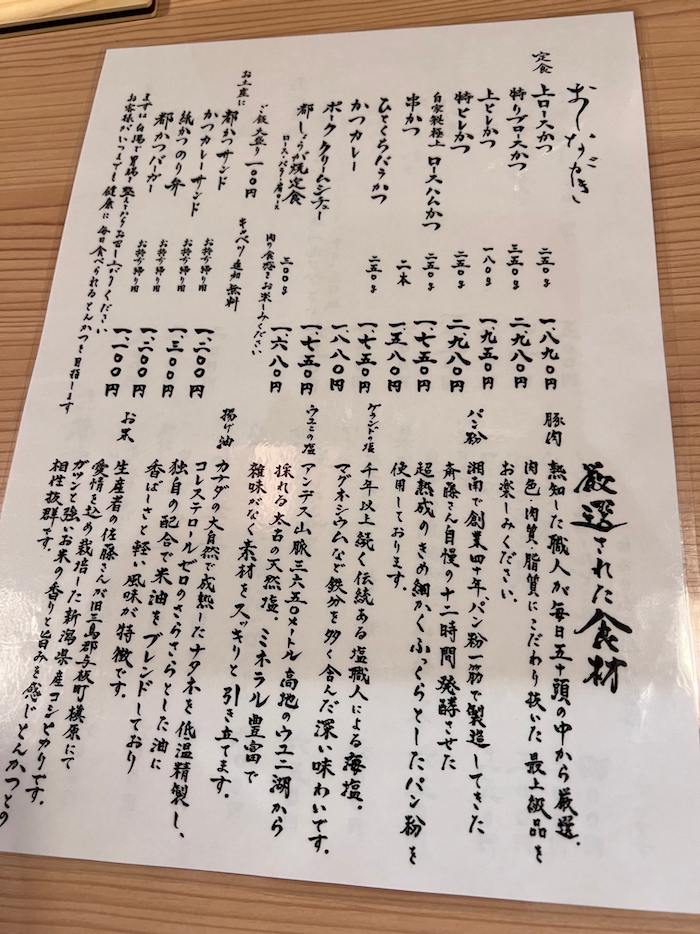 おしながき
定食
上ロースかつ 二五〇g 一、八九〇円
特リブロースかつ 三五〇g 二、九八〇円
上ヒレかつ 一八〇g 一、九五〇円
特ヒレかつ 二五〇g 二、九八〇円
自家製極上ロースハムかつ 二五〇g 一、七五〇円
串かつ 二本 一、五八〇円
ひとくちバラかつ 二五〇g 一、七五〇円
かつカレー 一、八八〇円
ポーククリームシチュー 一、七五〇円
都しょうが焼定食 三〇〇g 一、六八〇円
ロース・バラ・肩ロース 肉の食感をお楽しみください
ご飯大盛り 一〇〇円 キャベツ追加無料
お土産に
都かつサンド お持ち帰り用 一、二〇〇円
かつカレーサンド お持ち帰り用 一、三〇〇円
紙かつのり弁 お持ち帰り用 一、二〇〇円
都かつバーガー お持ち帰り用 一、一〇〇円
まずは白湯で胃腸を整えてからお召し上がりください
お客様がいつまでも健康に毎日食べられるとんかつを目指します
厳選された食材
豚肉
熟知した職人が毎日五十頭の中から厳選。
肉色・肉質・脂質にこだわり抜いた最上級品を
お楽しみください。
パン粉
湘南で創業四十年パン粉一筋で製造してきた
斉藤さん自慢の十二時間発酵させた
超熟成のきめ細かくふっくらとしたパン粉を
使用しております。
ゲランドの塩
千年以上続く伝統ある塩職人による海塩。
マグネシウムなど鉄分を多く含んだ深い味わいです。
ウユニの塩
アンデス山脈三六五〇メートル高地のウユニ湖から
採れる太古の天然塩。ミネラル豊富で
雑味がなく素材をスッキリと引き立てます。
揚げ油
カナダの大自然で成熟したナタネを低温精製し、
コレステロールゼロのさらさらとした油に
独自の配合で米油をブレンドしており
香ばしさと軽い風味が特徴です。
お米
生産者の佐藤さんが旧三島郡与板町槙原にて
愛情を込め栽培した新潟県産コシヒカリです。
ガツンと強いお米の香りと旨みを感じとんかつとの
相性抜群です。